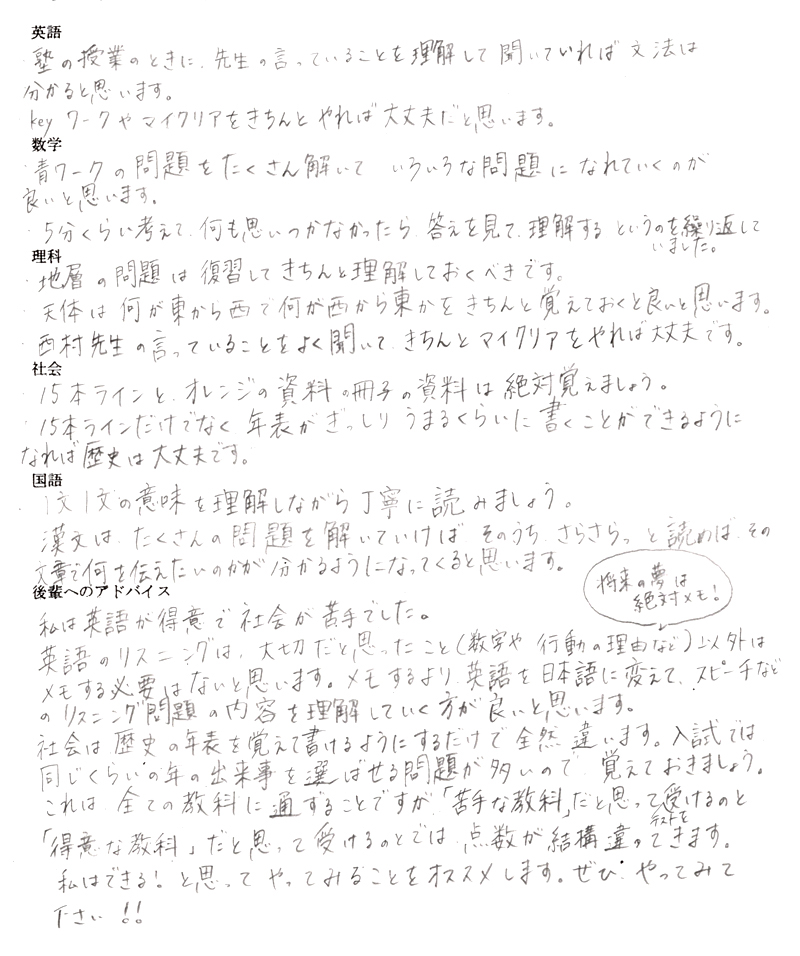 英語
・塾の授業のときに、先生の言っていることを理解して聞いていれば文法は
分かると思います。
・keyワークやマイクリアをきちんとやれば大丈夫だと思います。
数学
・青ワークの問題をたくさん解いて いろいろな問題になれていくのが
良いと思います。
・5分くらい考えて、何も思いつかなかったら、答えを見て、理解するというのを繰り返して
いました。
理科
・地層の問題は復習してきちんと理解しておくべきです。
・天体は何が東から西で何が西から東かをきちんと覚えておくと良いと思います。
・西村先生の言っていることをよく聞いて、きちんとマイクリアをやれば大丈夫です。
社会
・15本ラインと、オレンジの資料の冊子の資料は絶対覚えましょう。
・15本ラインだけでなく年表がぎっしりうまるくらいに書くことができるように
なれば歴史は大丈夫です。
国語
・1文1文の意味を理解しながら丁寧に読みましょう。
・漢文は、たくさんの問題を解いていけば、そのうち、さらさらっと読めば、その
文章で何を伝えたいのかが分かるようになってくると思います。
後輩へのアドバイス
将来の夢は
絶対メモ!
私は英語が得意で社会が苦手でした。
英語のリスニングは、大切だと思ったこと(数字や行動の理由など)以外は
メモする必要はないと思います。メモするより、英語を日本語に変えて、スピーチなど
のリスニング問題の内容を理解していく方が良いと思います。
社会は歴史の年表を覚えて書けるようにするだけで全然違います。入試では、
同じくらいの年の出来事を選ばせる問題が多いので、覚えておきましょう。
これは、全ての教科に通ずることですが、「苦手な教科」だと思って受けるのと
「得意な教科」だと思ってテストを受けるのとでは、点数が結構違ってきます。
私はできる!と思ってやってみることをオススメします。ぜひ、やってみて
下さい!!